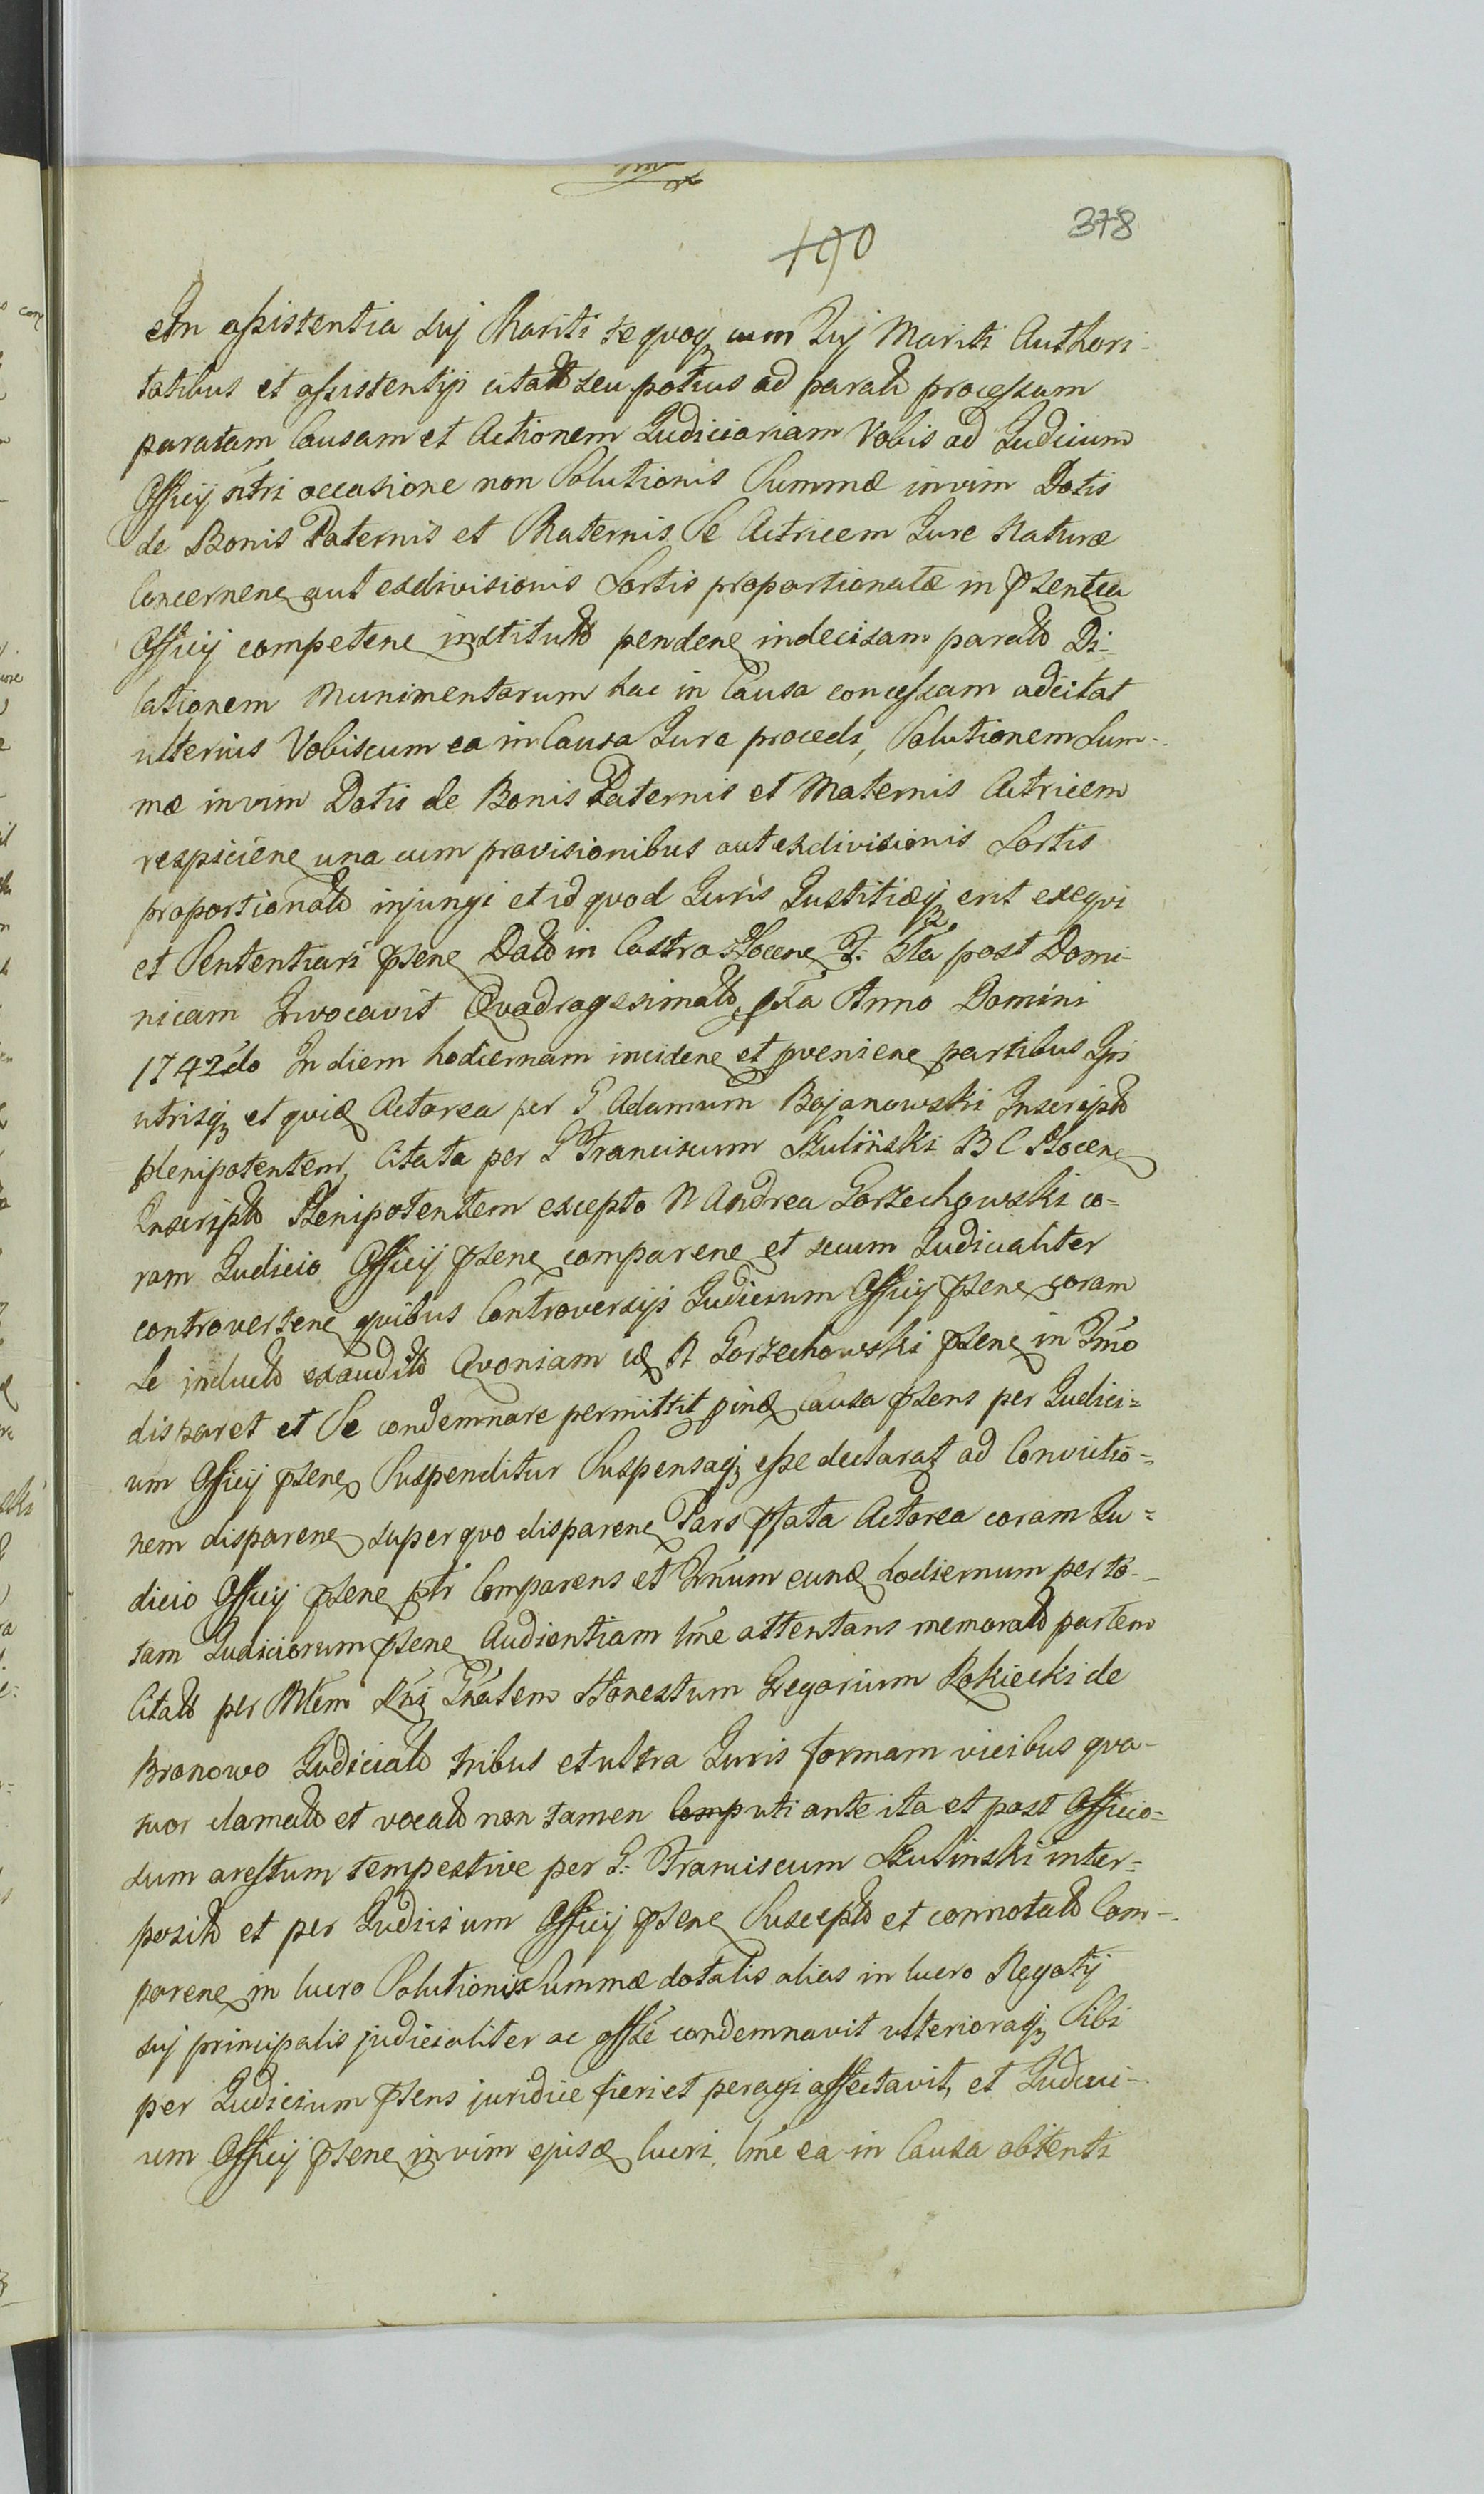 378
in assistentia sui Mariti te quoq cum Tuj Mariti Authori-
tatibus et assistentijs citatt seu potius ad paratt processum
paratam Causam et Actionem Judiciariam Vobis ad Judicium
Officij ntri occasione non Solutionis Summæ in vim Dotis
de Bonis Paternis et Maternis Se Actricem Jure Naturæ
Concernen aut exdivisionis Sortis proportionatæ in psentia
Officij competen institutt penden indecisam paratt Di-
lationem Munimentorum hac in Causa concessam adcitat
ulterius Vobiscum ea in Causa Jure procedi, Solutionem Sum-
mæ in vim Dotis de Bonis Paternis et Maternis Actricem
respicien una cum provisionibus aut exdivisionis Sortis
proportionatt injungi et id quod Juris Justitiæq erit exequi
et Sententiari psen Datt in Castro Plocen F. 6ta post Domi-
nicam Invocavit Quadragesimatt pxa Anno Domini
1742do In diem hodiernam inciden et pvenien partibus Ipsi
utrisq et quid Actorea per G Adamum Bojanowski Inscriptt
plenipotentem, Citata per G Franciscum Szuliński B C Plocen
Inscriptt Plenipotentem excepto N Andrea Gorzechowski co-
ram Judicio Officij psen comparen et secum Judicialiter
controverten quibus Controversijs Judicium Officij psen coram
Se inductt exauditt Quoniam id N Gorzechowski psen in Tmo
disparet et Se condemnare permittit pind Causa psens per Judici=
um Officij psen Suspenditur Suspensaq esse declarat ad Convictio=
nem disparen super quo disparen Pars pfata Actorea coram Ju=
dicio Officij psen ptr Comparens et Tmum eund hodiernum per to-
tam Judiciorum psen Audientiam lme attentans memoratt partem
Citatt per Mlem Rni Gnalem Honestum Gregorium Rokicki de
Bronowo Judicialt tribus et ultra Juris formam vicibus qva-
tuor clamatt et vocatt non tamen Comp uti ante ita et post Officio=
sum arestum tempestive per G. Franciscum Szulinski inter=
positt et per Judicium Officij psen Susceptt et connotatt Com-
paren in lucro Solutionis Summæ dotalis alias in lucro Negotij
suj principalis judicialiter ac offse condemnavit ulterioraq Sibi
per Judicium psens juridice fieri et peragi affectavit, et Judici-
um Officij psen in vim ejusd lucri lme ea in Causa obtenti